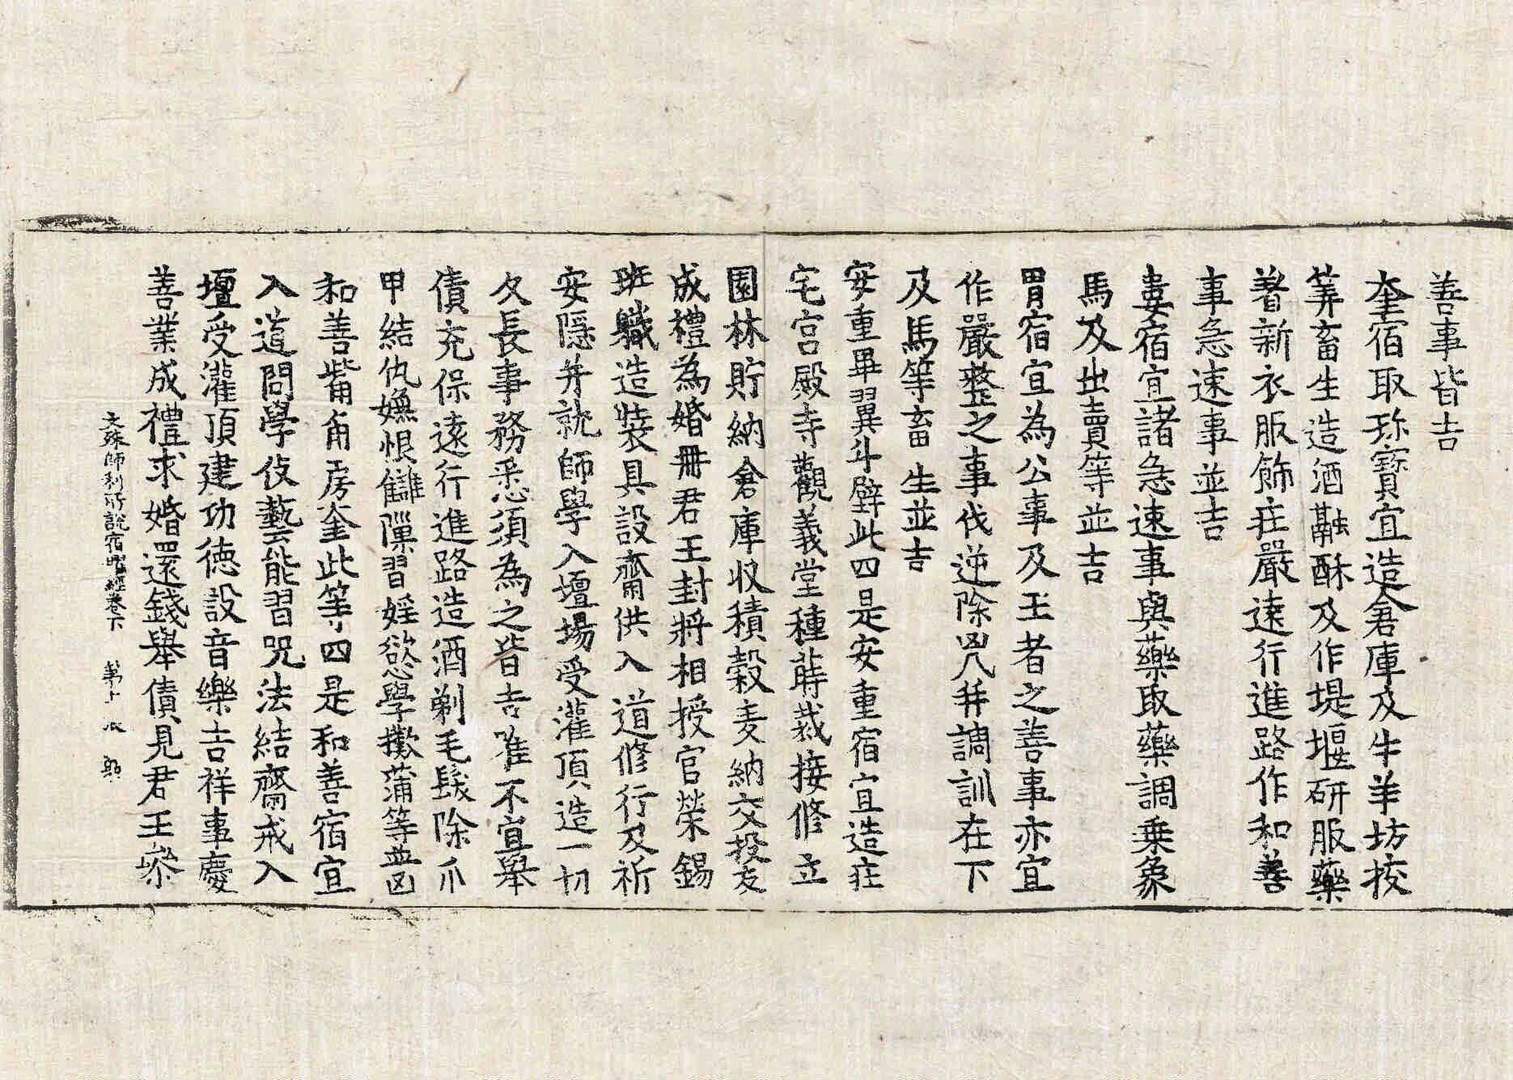 善事皆吉
奎宿取珎寶宜造倉庫及牛羊坊挍
筭畜生造酒融酥及作堤堰研服藥
著新衣服飾莊嚴遠行進路作和善
事急速事並吉
婁宿宜諸急速事與藥取藥調乗象
馬及出賣等並吉
胃宿宜為公事及王者之善事亦宜
作嚴整之事伐逆除凶并調訓在下
及馬等畜生並吉
安重畢翼斗壁此四是安重宿宜造莊
宅宮殿寺觀義堂種蒔栽接修立
園林貯納倉庫収積穀麦納交投友
成禮為婚冊君王封將相授官榮錫
班職造裝具設齋供入道修行及祈
安隱并就師學入壇場受灌頂造一切
久長事務悉須為之皆吉唯不宜舉
債充保遠行進路造酒剃毛髮除爪
甲結仇嫌恨讎隟習婬慾學摴蒲等並凶
和善觜角房奎此等四是和善宿宜
入道問學伎藝能習咒法結齋戒入
壇受灌頂建功德設音樂吉祥事慶
善業成禮求婚還錢舉債見君王叅
文殊師利所說宿曜經卷下 第十 㳄